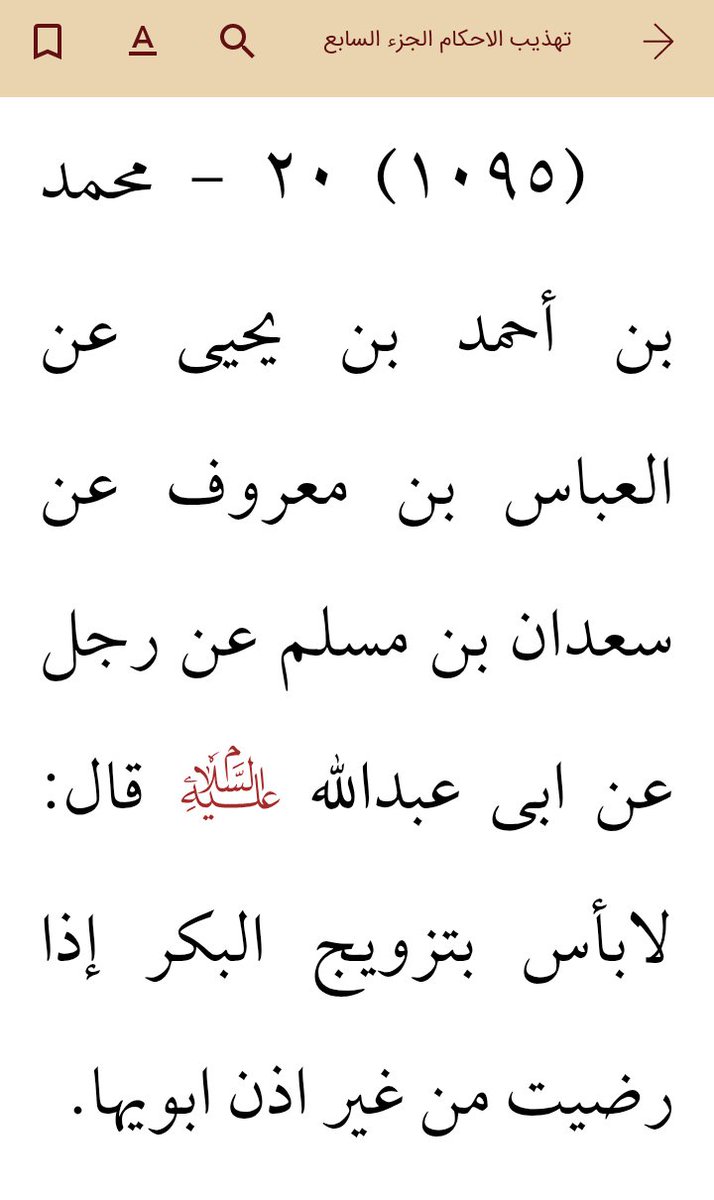 تهذيب الاحكام الجزء السابع
(١٠٩٥) ٢٠ - محمد
بن أحمد بن يحيى عن
العباس بن معروف عن
سعدان بن مسلم عن رجل
عن ابى عبدالله عليه السلام قال:
لابأس بتزويج البكر إذا
رضيت من غير اذن ابويها.